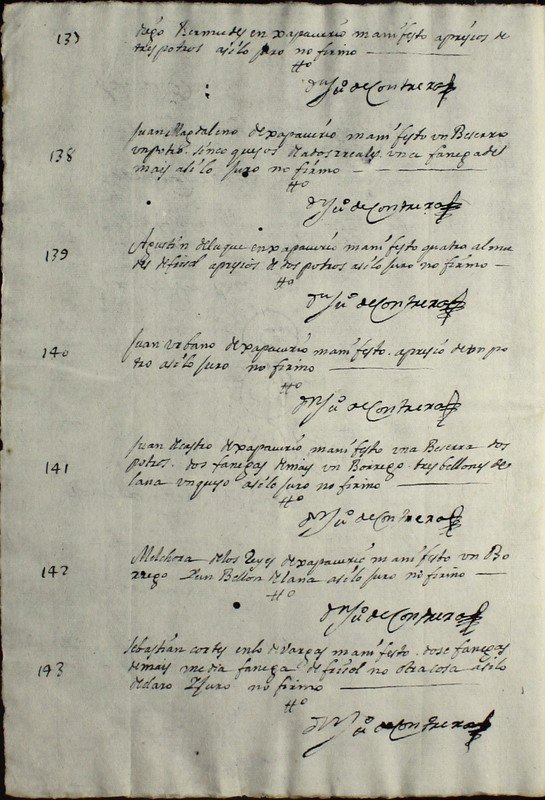 137 diego Bermudes en xapacurio manifesto apresios de
tres potros asi lo juro no firmo
don Ju° de Contreras
138 Juan Magdaleno de xapacurio manifesto un Beserro
un potro. sinco quesos de a dos rreales. una fanega de
mais asi lo juro no firmo
don Ju° de Contreras
139 Agustin en xapacurio manifesto quatro almu
des de frisol apresios de dos potros asi lo juro no firmo
don Ju° de Contreras
140 Juan urbano de xapacurio manifesto. apresio de un po
tro asi lo juro no firmo
don Ju° de Contreras
141 Juan de xapacurio manifesto una Beserra dos
potros. dos fanegas de mais un Borrego. tres bellones de
lana un queso asi lo juro no firmo
don Ju° de Contreras
142 Melchora de los Reyes de xapacurio manifesto un Bo
rrego Y un Bellon de lana asi lo juro no firmo
don Ju° de Contreras
143 Sebastian cortes en lo de Vargas manifesto. dose fanegas
de mais media fanega de frisol no otra cosa asi lo
declaro Y juro no firmo
don Ju° de Contreras